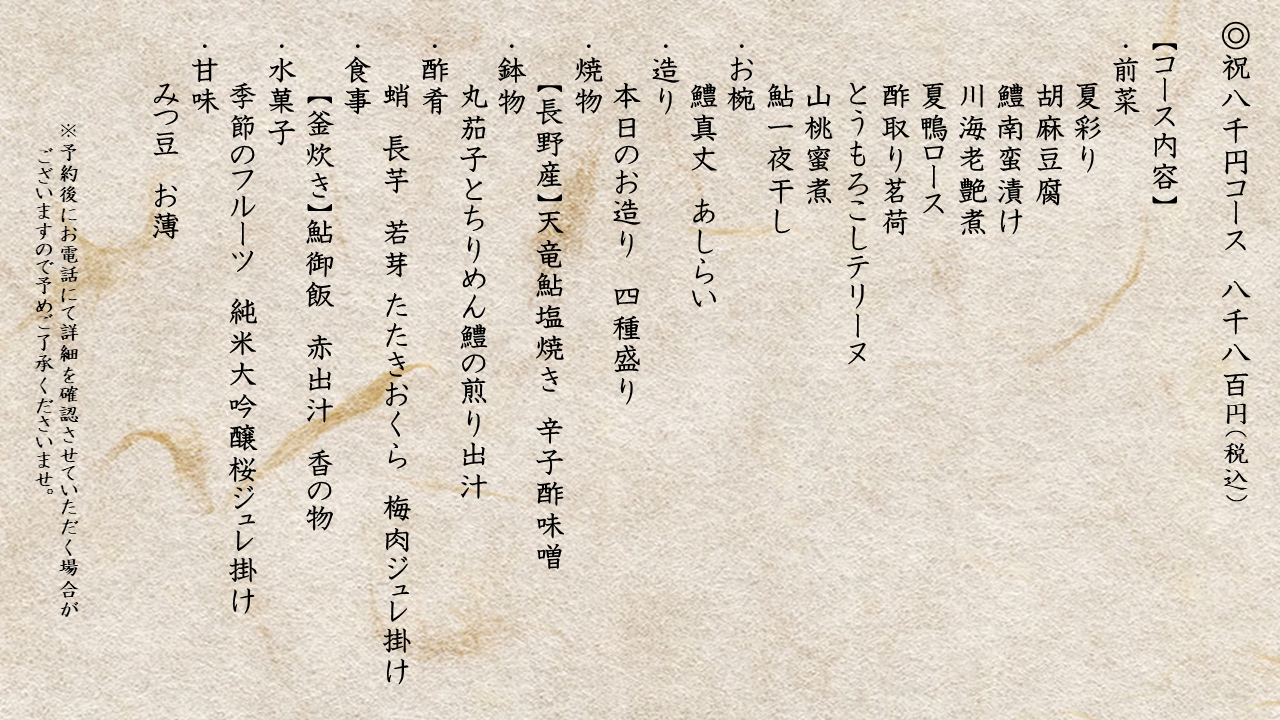 ◎祝八千円コース　八千八百円（税込）
【コース内容】
・前菜
夏彩り
胡麻豆腐
鱧南蛮漬け
川海老艶煮
夏鴨ロース
酢取り茗荷
とうもろこしテリーヌ
山桃蜜煮
鮎一夜干し
・お椀
鱧真丈　あしらい
・造り
本日のお造り　四種盛り
・焼物
【長野産】天竜鮎塩焼き　辛子酢味噌
・鉢物
丸茄子とちりめん鱧の煎り出汁
・酢肴
蛸　長芋　若芽　たたきおくら　梅肉ジュレ掛け
・食事
【釜炊き】鮎御飯　赤出汁　香の物
・水菓子
季節のフルーツ　純米大吟醸桜ジュレ掛け
・甘味
みつ豆　お薄
※予約後にお電話にて詳細を確認させていただく場合が
ございますので予めご了承くださいませ。